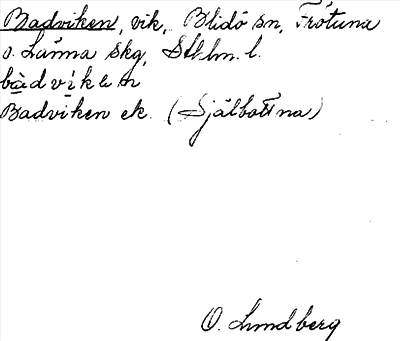 Badviken, vik, Blidö sn, Frötuna
o. Länna skg, Sthlm. l.
bàdvíken
Badviken ek. (Själbottna)
O. Lundberg